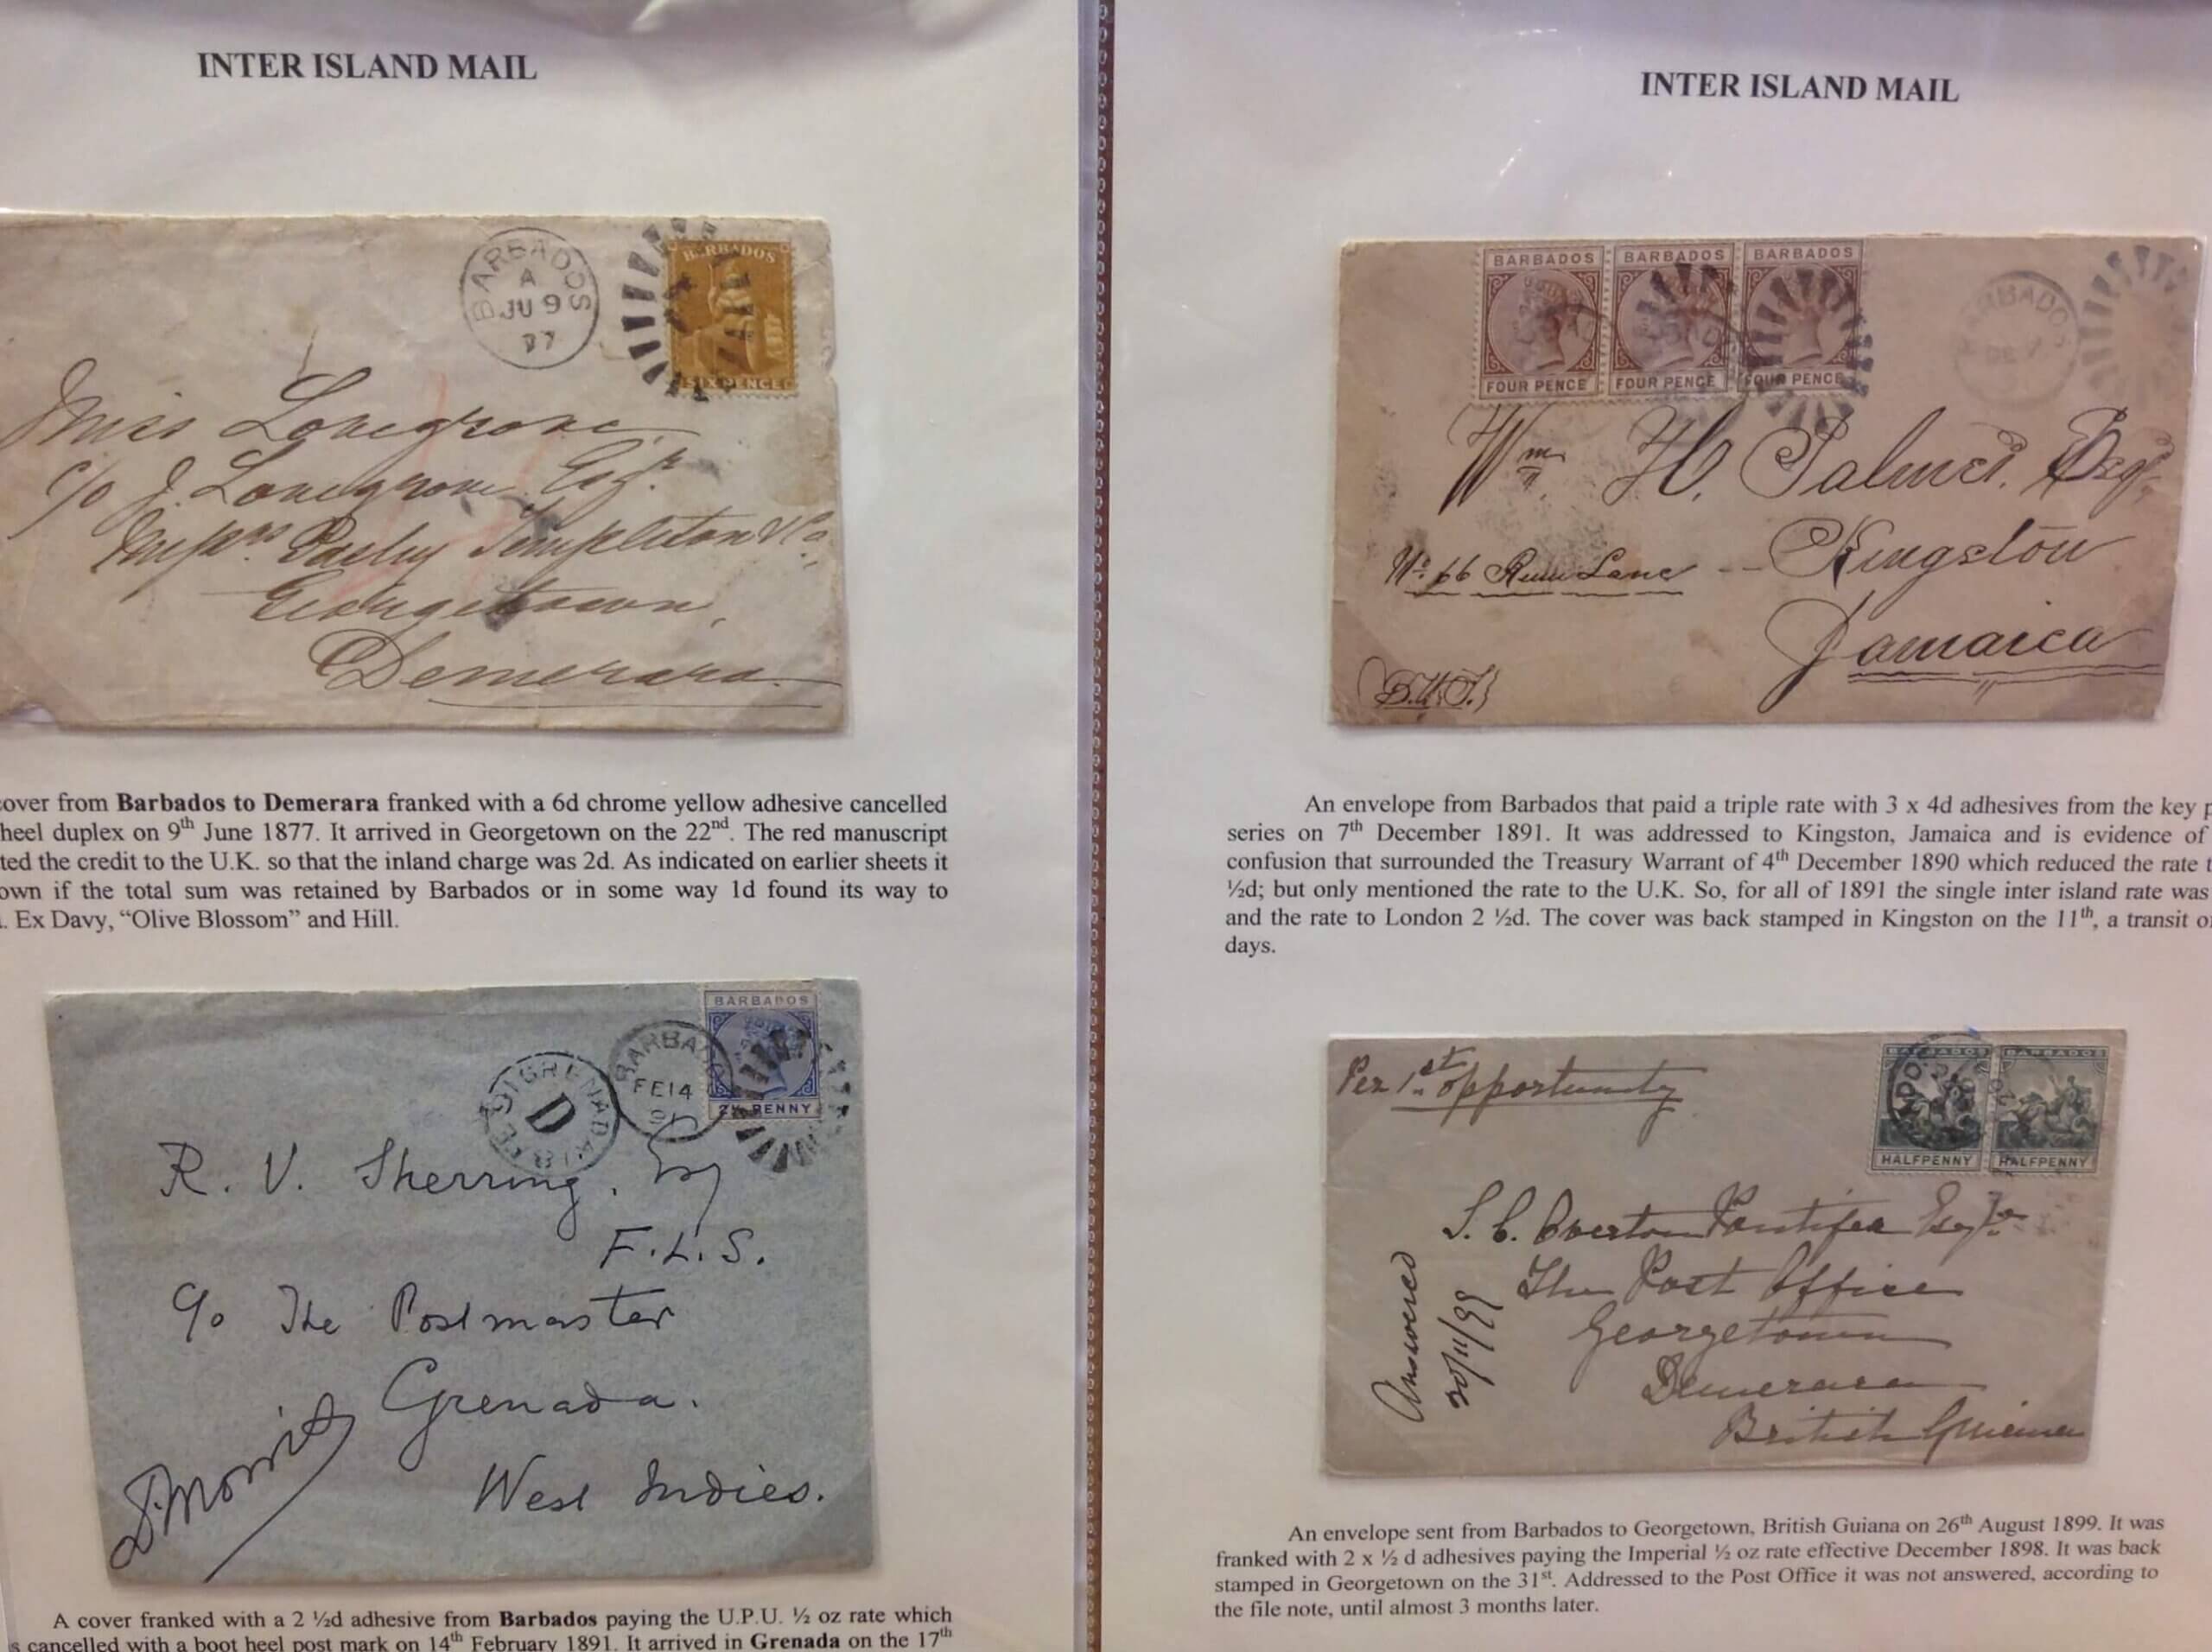 INTER ISLAND MAIL
BARBADOS
A
JU 9
77
BARBADOS
SIX PENCE
Miss Lovegrove
c/o J. Lovegrove Esqr.
Messrs Templeton & Co,
Georgetown,
Demerara
cover from Barbados to Demerara franked with a 6d chrome yellow adhesive cancelled
heel duplex on 9th June 1877. It arrived in Georgetown on the 22nd. The red manuscript
ted the credit to the U.K. so that the inland charge was 2d. As indicated on earlier sheets it
own if the total sum was retained by Barbados or in some way 1d found its way to
. Ex Davy, “Olive Blossom” and Hill.
GRENADA
D
BARBADO
FE 14
91
BARBADOS
2½ PENNY
R. V. Sherring, Esq
F.L.S.
c/o The Postmaster
Grenada.
West Indies.
D. Morris
A cover franked with a 2 ½d adhesive from Barbados paying the U.P.U. ½ oz rate which
s cancelled with a boot heel post mark on 14th February 1891. It arrived in Grenada on the 17th
INTER ISLAND MAIL
BARBADOS BARBADOS BARBADOS
FOUR PENCE FOUR PENCE FOUR PENCE
BARBADOS
DE 7
Wm H. Palmer, Esq.
No. 66 Rum Lane -- Kingston
Jamaica
An envelope from Barbados that paid a triple rate with 3 x 4d adhesives from the key p
series on 7th December 1891. It was addressed to Kingston, Jamaica and is evidence of
confusion that surrounded the Treasury Warrant of 4th December 1890 which reduced the rate t
½d; but only mentioned the rate to the U.K. So, for all of 1891 the single inter island rate was
and the rate to London 2 ½d. The cover was back stamped in Kingston on the 11th, a transit o
days.
Per 1st opportunity
BARBADOS BARBADOS
HALFPENNY HALFPENNY
S. C. Overton Pontifex Esqre
The Post Office
Georgetown
Demerara
British Guiana
Answered
20/11/99
An envelope sent from Barbados to Georgetown, British Guiana on 26th August 1899. It was
franked with 2 x ½ d adhesives paying the Imperial ½ oz rate effective December 1898. It was back
stamped in Georgetown on the 31st. Addressed to the Post Office it was not answered, according to
the file note, until almost 3 months later.